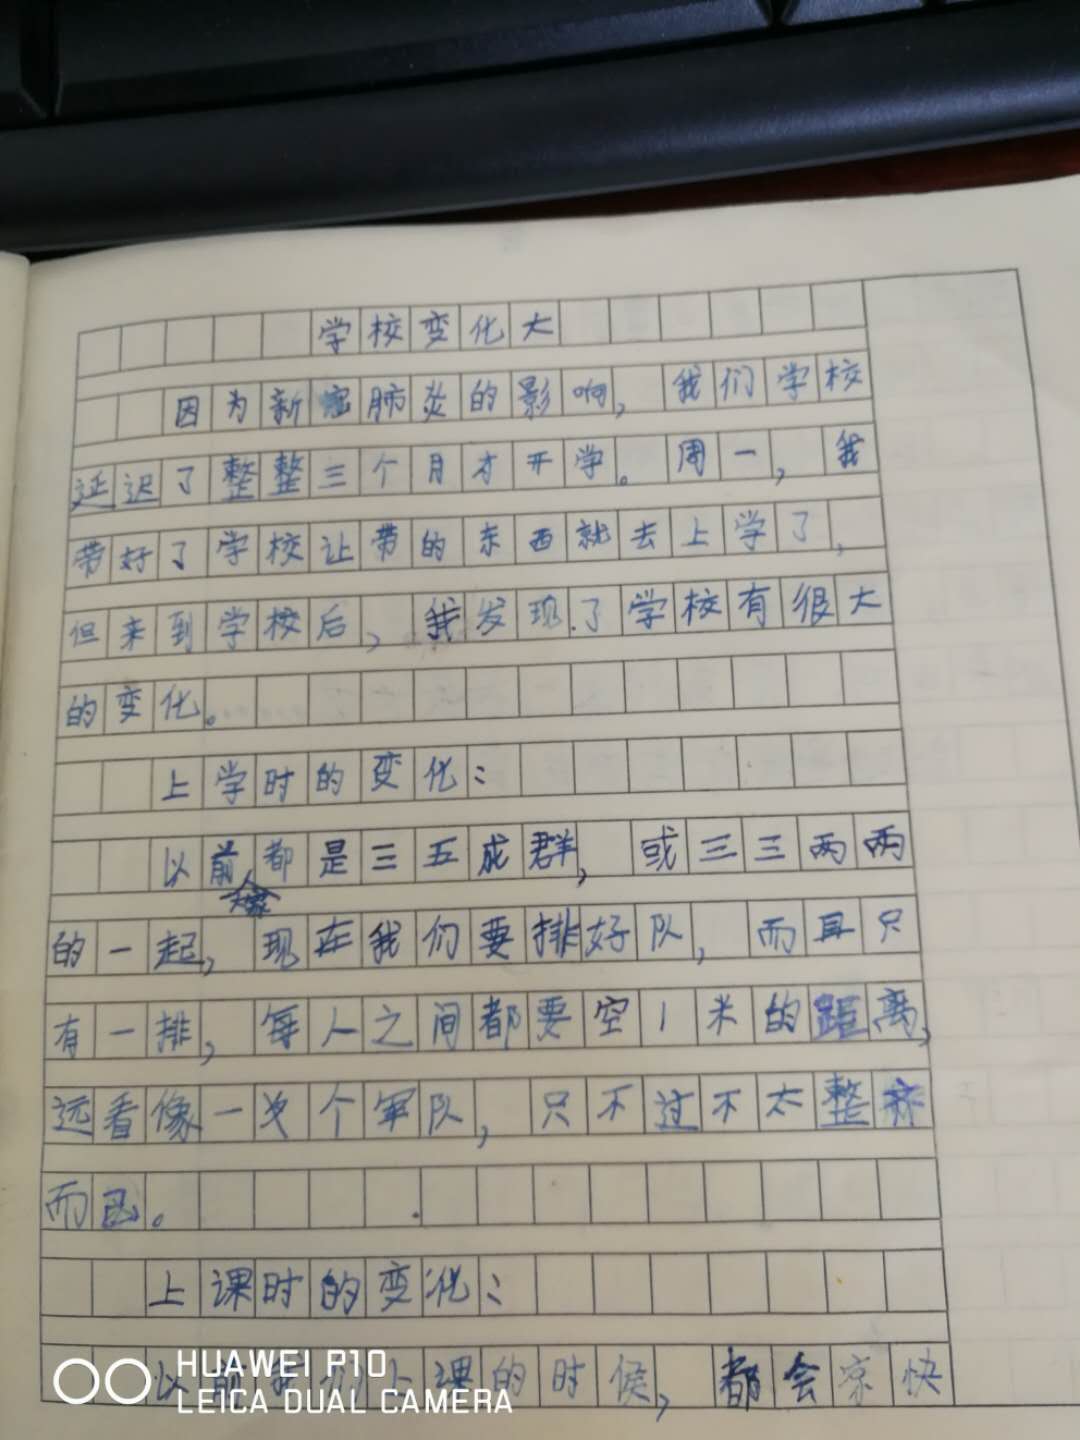 学校变化大
因为新冠肺炎的影响，我们学校
延迟了整整三个月才开学。周一，我
带好了学校让带的东西就去上学了，
但来到学校后，我发现了学校有很大
的变化。
上学时的变化：
以前大家都是三五成群，或三三两两
的一起，现在我们要排好队，而且只
有一排，每人之间都要空1米的距离，
远看像一次个军队，只不过不太整齐
而已。
上课时的变化：
以前我们上课的时候，都会凉快
HUAWEI P10
LEICA DUAL CAMERA